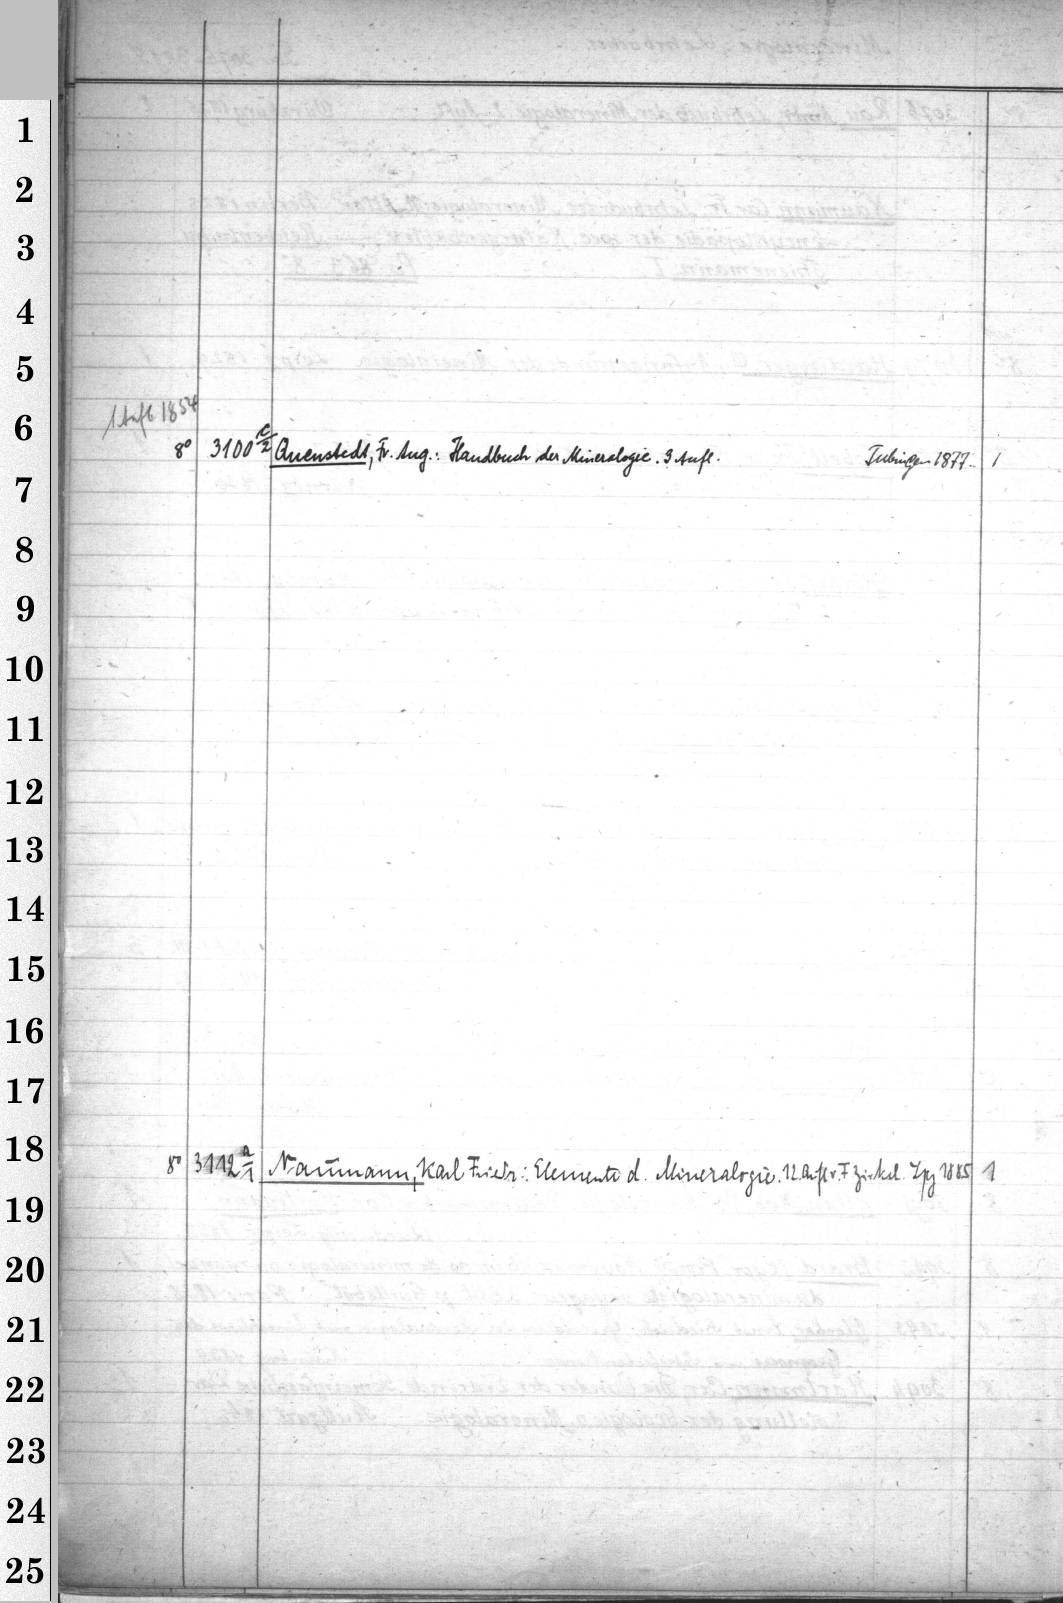 1
2
3
4
5
6
7
8
9
10
11
12
13
14
15
16
17
18
19
20
21
22
23
24
25
1 Aufl 1854
8° 3100 c/2 Quenstedt, Fr. Aug.: Handbuch der Mineralogie. 3 Aufl. Tübingen 1877. 1
8° 3112 a/1 Naumann, Karl Friedr.: Elemente d. Mineralogie. 12. Aufl v. F Zirkel. Lpz 1885 1